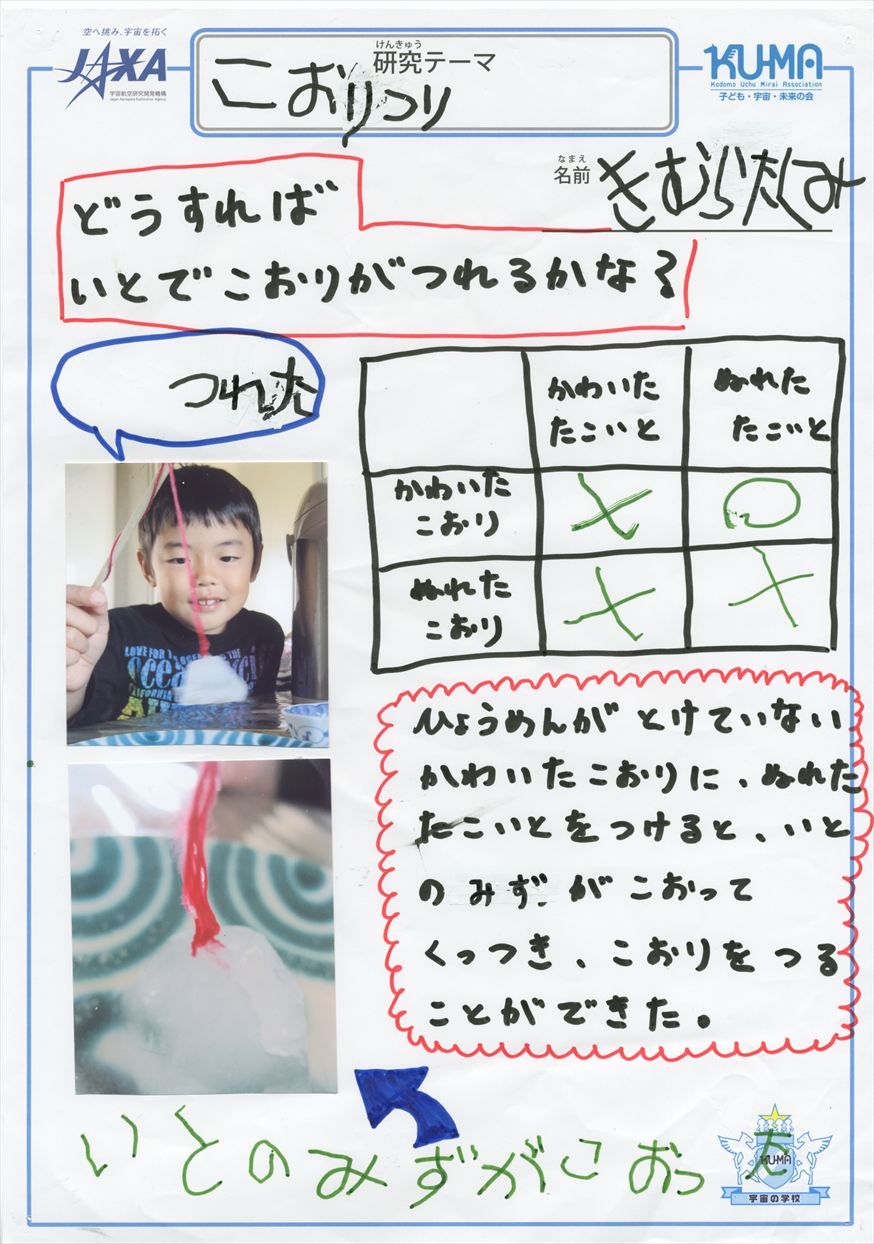 空へ挑み、宇宙を拓く
JAXA
宇宙航空研究開発機構
Japan Aerospace Exploration Agency
けんきゅう
研究テーマ
こおりつり
KU-MA
Kodomo Uchu Mirai Association
子ども・宇宙・未来の会
なまえ
名前 きむらたくみ
どうすれば
いとでこおりがつれるかな?
つれた
かわいた
たこいと
ぬれた
たこいと
かわいた
こおり
× ○
ぬれた
こおり
× ×
LOVE FOR
CALIFORNIA
ひょうめんがとけていない
かわいたこおりに、ぬれた
たこいとをつけると、いと
のみずがこおって
くっつき、こおりをつる
ことができた。
いとのみずがこおった
KU-MA
宇宙の学校